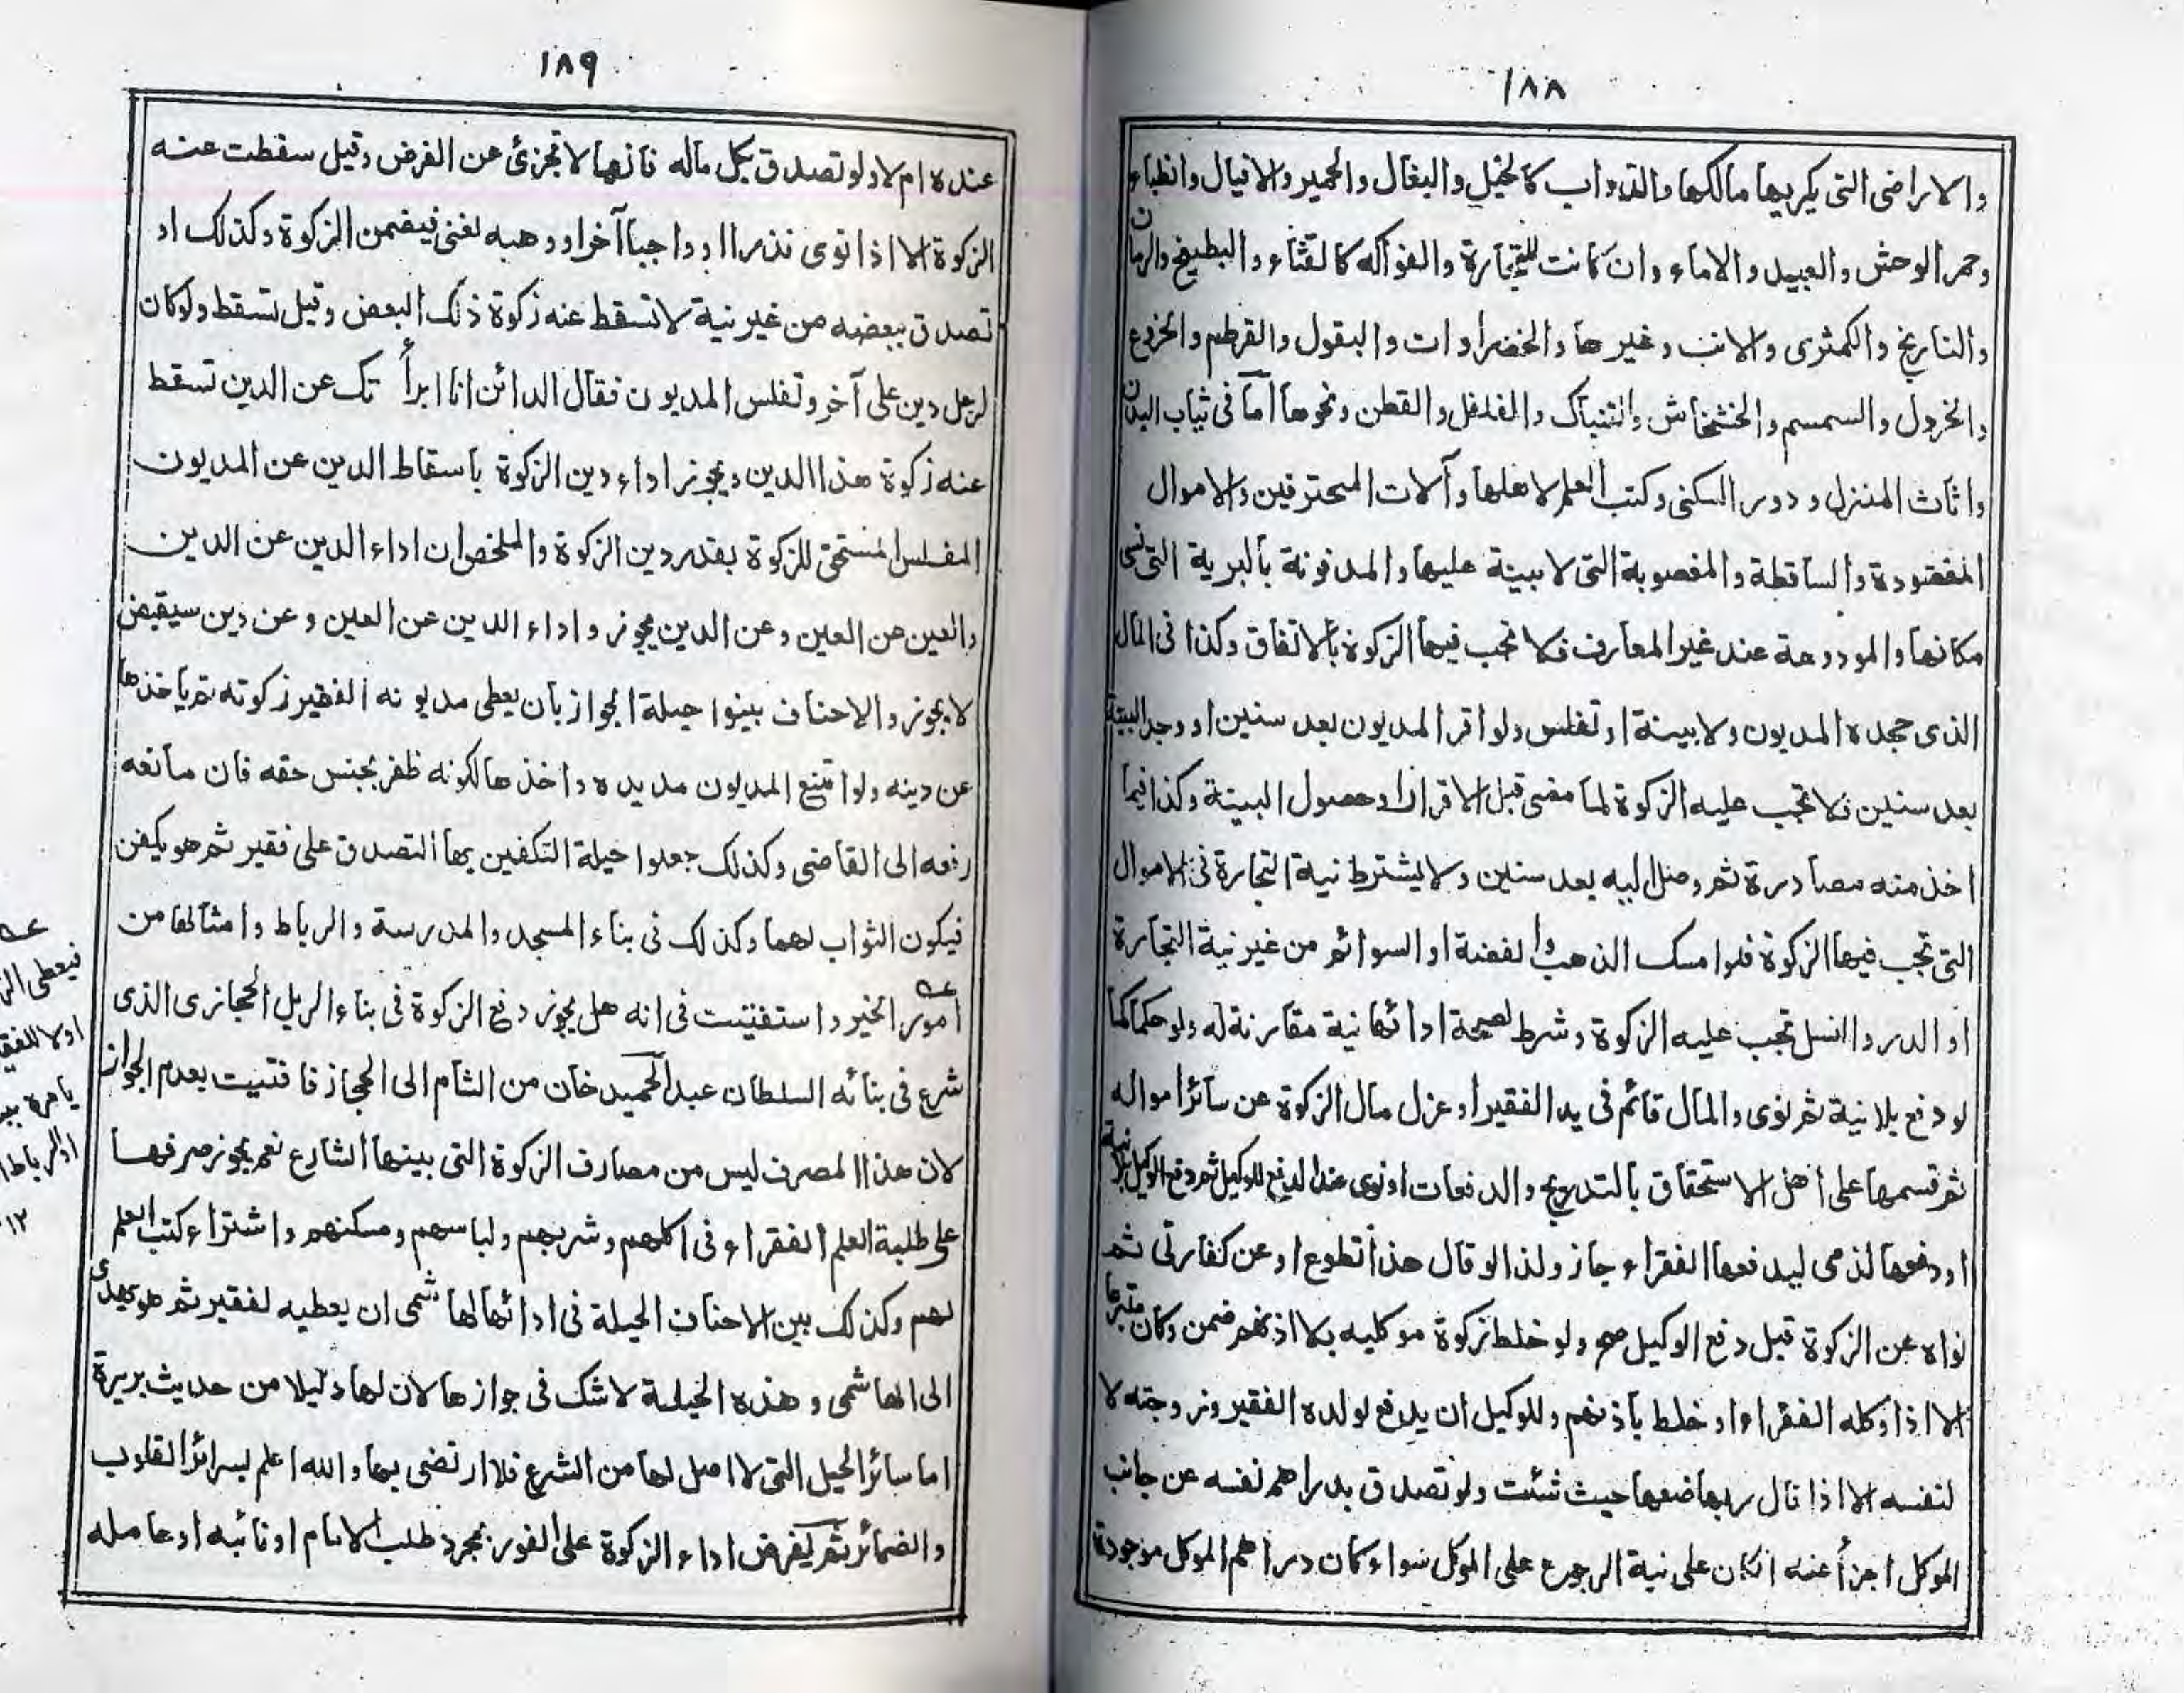 ١٨٨
والاراضى التى يكريها مالكها والدواب كالخيل والبغال والحمير والافيال والظباء
وحمر الوحش والعبيد والاماء وان كانت للتجارة والفواكه كالقثاء والبطيخ والرمان
والنارنج والكمثرى والانب وغيرها والخضراوات والبقول والقرطم والخروع
والخرول والسمسم والخشخاش والتنباك والفلفل والقطن ونحوها اما فى ثياب البدن
واثاث المنزل ودور السكنى وكتب العلم لاهلها وآلات المحترفين والاموال
المفقودة والساقطة والمغصوبة التى لا بينة عليها والمدفونة بالبرية التى نسى
مكانها والمودوعة عند غير المعارف فلا تجب فيها الزكوة بالاتفاق وكذا فى المال
الذى جحده المديون ولا بينة او تفلس ولو اقر المديون بعد سنين او وجد البينة
بعد سنين فلا تجب عليه الزكوة لما مضى قبل الاقرار او حصول البينة وكذا فيما
اخذ منه مصادرة ثم وصل اليه بعد سنين ولا يشترط نية التجارة فى الاموال
التى تجب فيها الزكوة فلو امسك الذهب والفضة او السوائم من غير نية التجارة
او الدر والنسل تجب عليه الزكوة وشرط لصحة ادائها نية مقارنة له ولو حكما كما
لو دفع بلا نية ثم نوى والمال قائم فى يد الفقير او عزل مال الزكوة عن سائر امواله
ثم قسمها على اهل الاستحقاق بالتدريج والدفعات او نوى عند الدفع للوكيل ثم دفع الوكيل بلا نية
او دفعها لذمى ليدفعها الفقراء جاز ولذا لو قال هذا تطوع او عن كفارتى ثم
نواه عن الزكوة قبل دفع الوكيل صح ولو خلط زكوة موكليه بلا اذنهم ضمن وكان متبرعا
الا اذا وكله الفقراء او خلط باذنهم وللوكيل ان يدفع لولده الفقير وزوجته لا
لنفسه الا اذا قال ربها ضعها حيث شئت ولو تصدق بدراهم نفسه عن جانب
الموكل اجزأ عنه ان كان على نية الرجوع على الموكل سواء كان دراهم الموكل موجودة
١٨٩
عنده ام لا ولو تصدق بكل ماله فانها لا تجزئ عن الفرض وقيل سقطت عنه
الزكوة الا اذا نوى نذرا او واجبا آخر او وهبه لغنى فيضمن الزكوة وكذلك او
تصدق ببعضه من غير نية لا تسقط عنه زكوة ذلك البعض وقيل تسقط ولو كان
لرجل دين على آخر وتفلس المديون فقال الدائن انا ابرأتك عن الدين تسقط
عنه زكوة هذا الدين ويجوز اداء دين الزكوة باسقاط الدين عن المديون
المفلس المستحق للزكوة بقدر دين الزكوة والملخص ان اداء الدين عن الدين
والعين عن العين وعن الدين يجوز واداء الدين عن العين وعن دين سيقبض
لا يجوز والاحناف بينوا حيلة الجواز بان يعطى مديونه الفقير زكوته ثم ياخذها
عن دينه ولو امتنع المديون مد يده واخذها لكونه ظفر بجنس حقه فان مانعه
رفعه الى القاضى وكذلك جعلوا حيلة التكفين بها التصدق على فقير ثم هو يكفن
فيكون الثواب لهما وكذلك فى بناء المسجد والمدرسة والرباط وامثالها من
امور الخير واستفتيت فى انه هل يجوز دفع الزكوة فى بناء الريل الحجازى الذى
شرع فى بنائه السلطان عبد الحميد خان من الشام الى الحجاز فافتيت بعدم الجواز
لان هذا المصرف ليس من مصارف الزكوة التى بينها الشارع نعم يجوز صرفها
على طلبة العلم الفقراء فى اكلهم وشربهم ولباسهم ومسكنهم واشتراء كتب العلم
لهم وكذلك بين الاحناف الحيلة فى ادائها لهاشمى ان يعطيه لفقير ثم هو يهدى
الى الهاشمى وهذه الحيلة لا شك فى جوازها لان لها دليلا من حديث بريرة
اما سائر الحيل التى لا اصل لها من الشرع فلا ارتضى بها والله اعلم بسرائر القلوب
والضمائر ثم يفرض اداء الزكوة على الفور بمجرد طلب الامام او نائبه او عامله
عه
فيعطى الز
اولا للفق
يامره
او الرباط
١٢